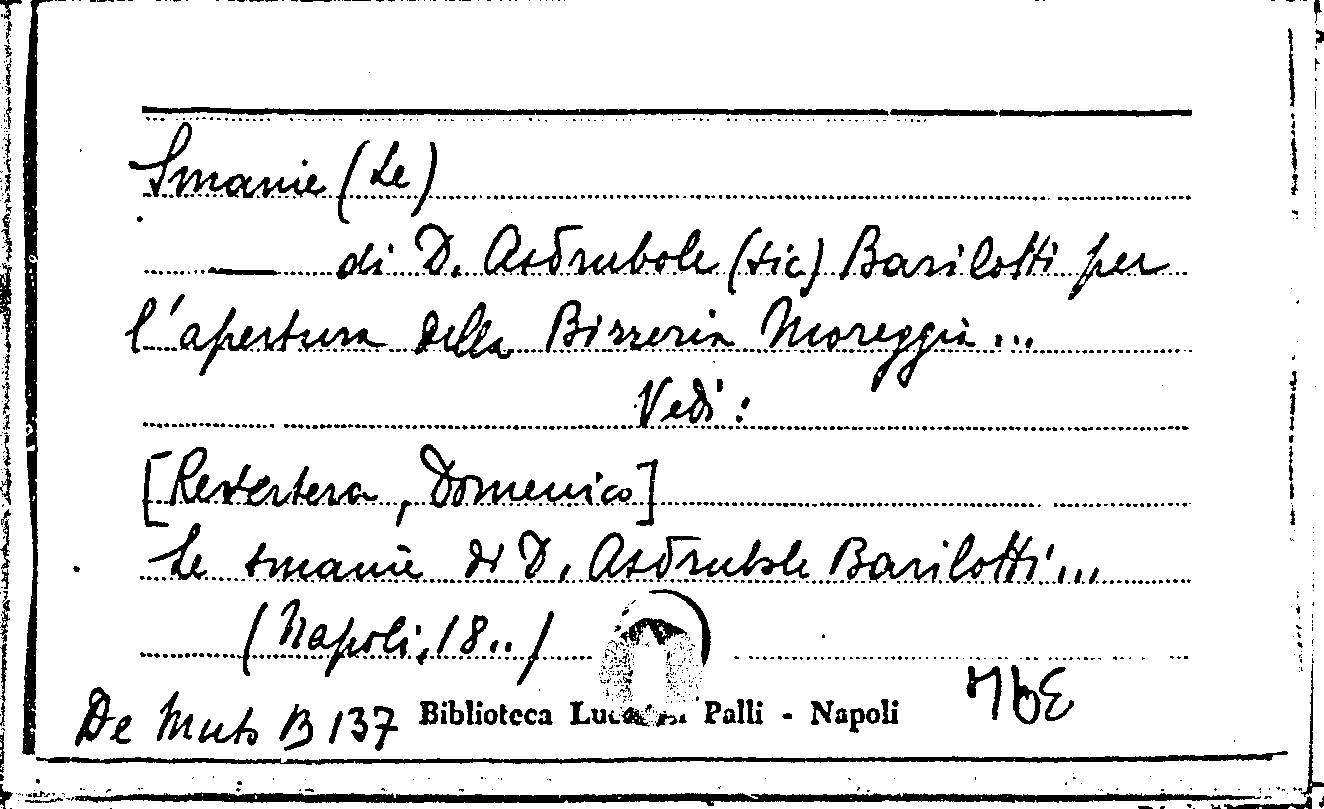 Smanie (Le)
— di D. Asdrubole (sic) Barilotti per
l'apertura della Birreria Moreggia...
Vedi:
[Restertera, Domenico]
Le smanie di D. Asdrubole Barilotti...
(Napoli, 18..)
De Muto B 137
Biblioteca Palli - Napoli